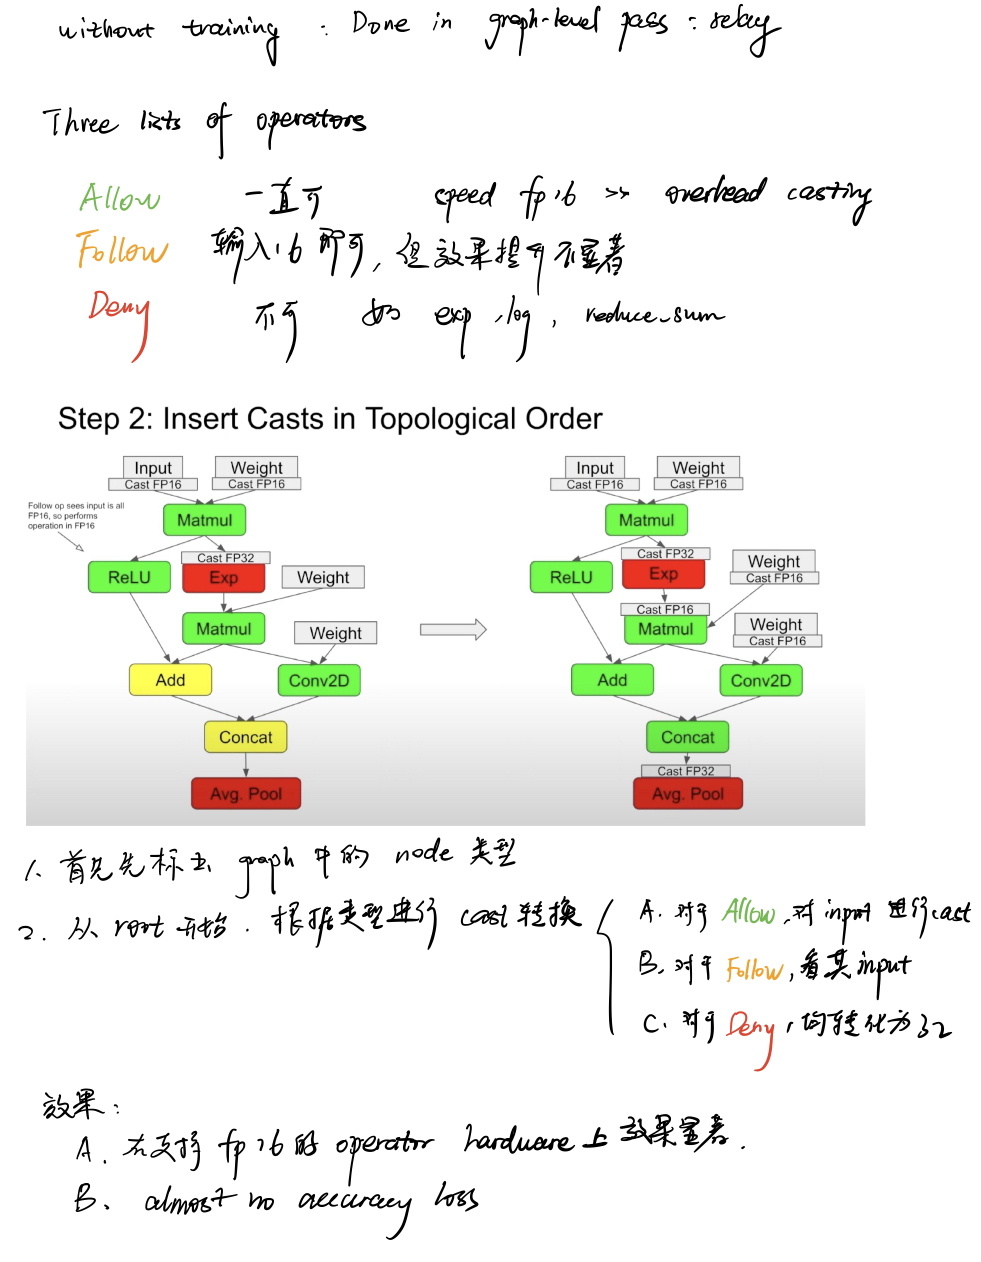 without training : Done in graph-level pass : relay
Three lists of operators
Allow 一直可 speed fp16 >> overhead casting
Follow 输入16即可, 但效果提升不显著
Deny 不可 如 exp, log, reduce_sum
Step 2: Insert Casts in Topological Order
Input Weight
Cast FP16 Cast FP16
Follow op sees input is all
FP16, so performs
operation in FP16
Matmul
Cast FP32
ReLU Exp Weight
Matmul Weight
Add Conv2D
Concat
Avg. Pool
Input Weight
Cast FP16 Cast FP16
Matmul
Cast FP32 Weight
ReLU Exp Cast FP16
Cast FP16 Weight
Matmul Cast FP16
Add Conv2D
Concat
Cast FP32
Avg. Pool
1. 首先先标出 graph 中的 node 类型
2. 从 root 开始. 根据类型进行 cast 转换
A. 对于 Allow, 对 input 进行cast
B. 对于 Follow, 看其input
C. 对于 Deny, 均转化为32
效果:
A. 在支持 fp16 的 operator hardware 上 效果显著.
B. almost no accuracy loss